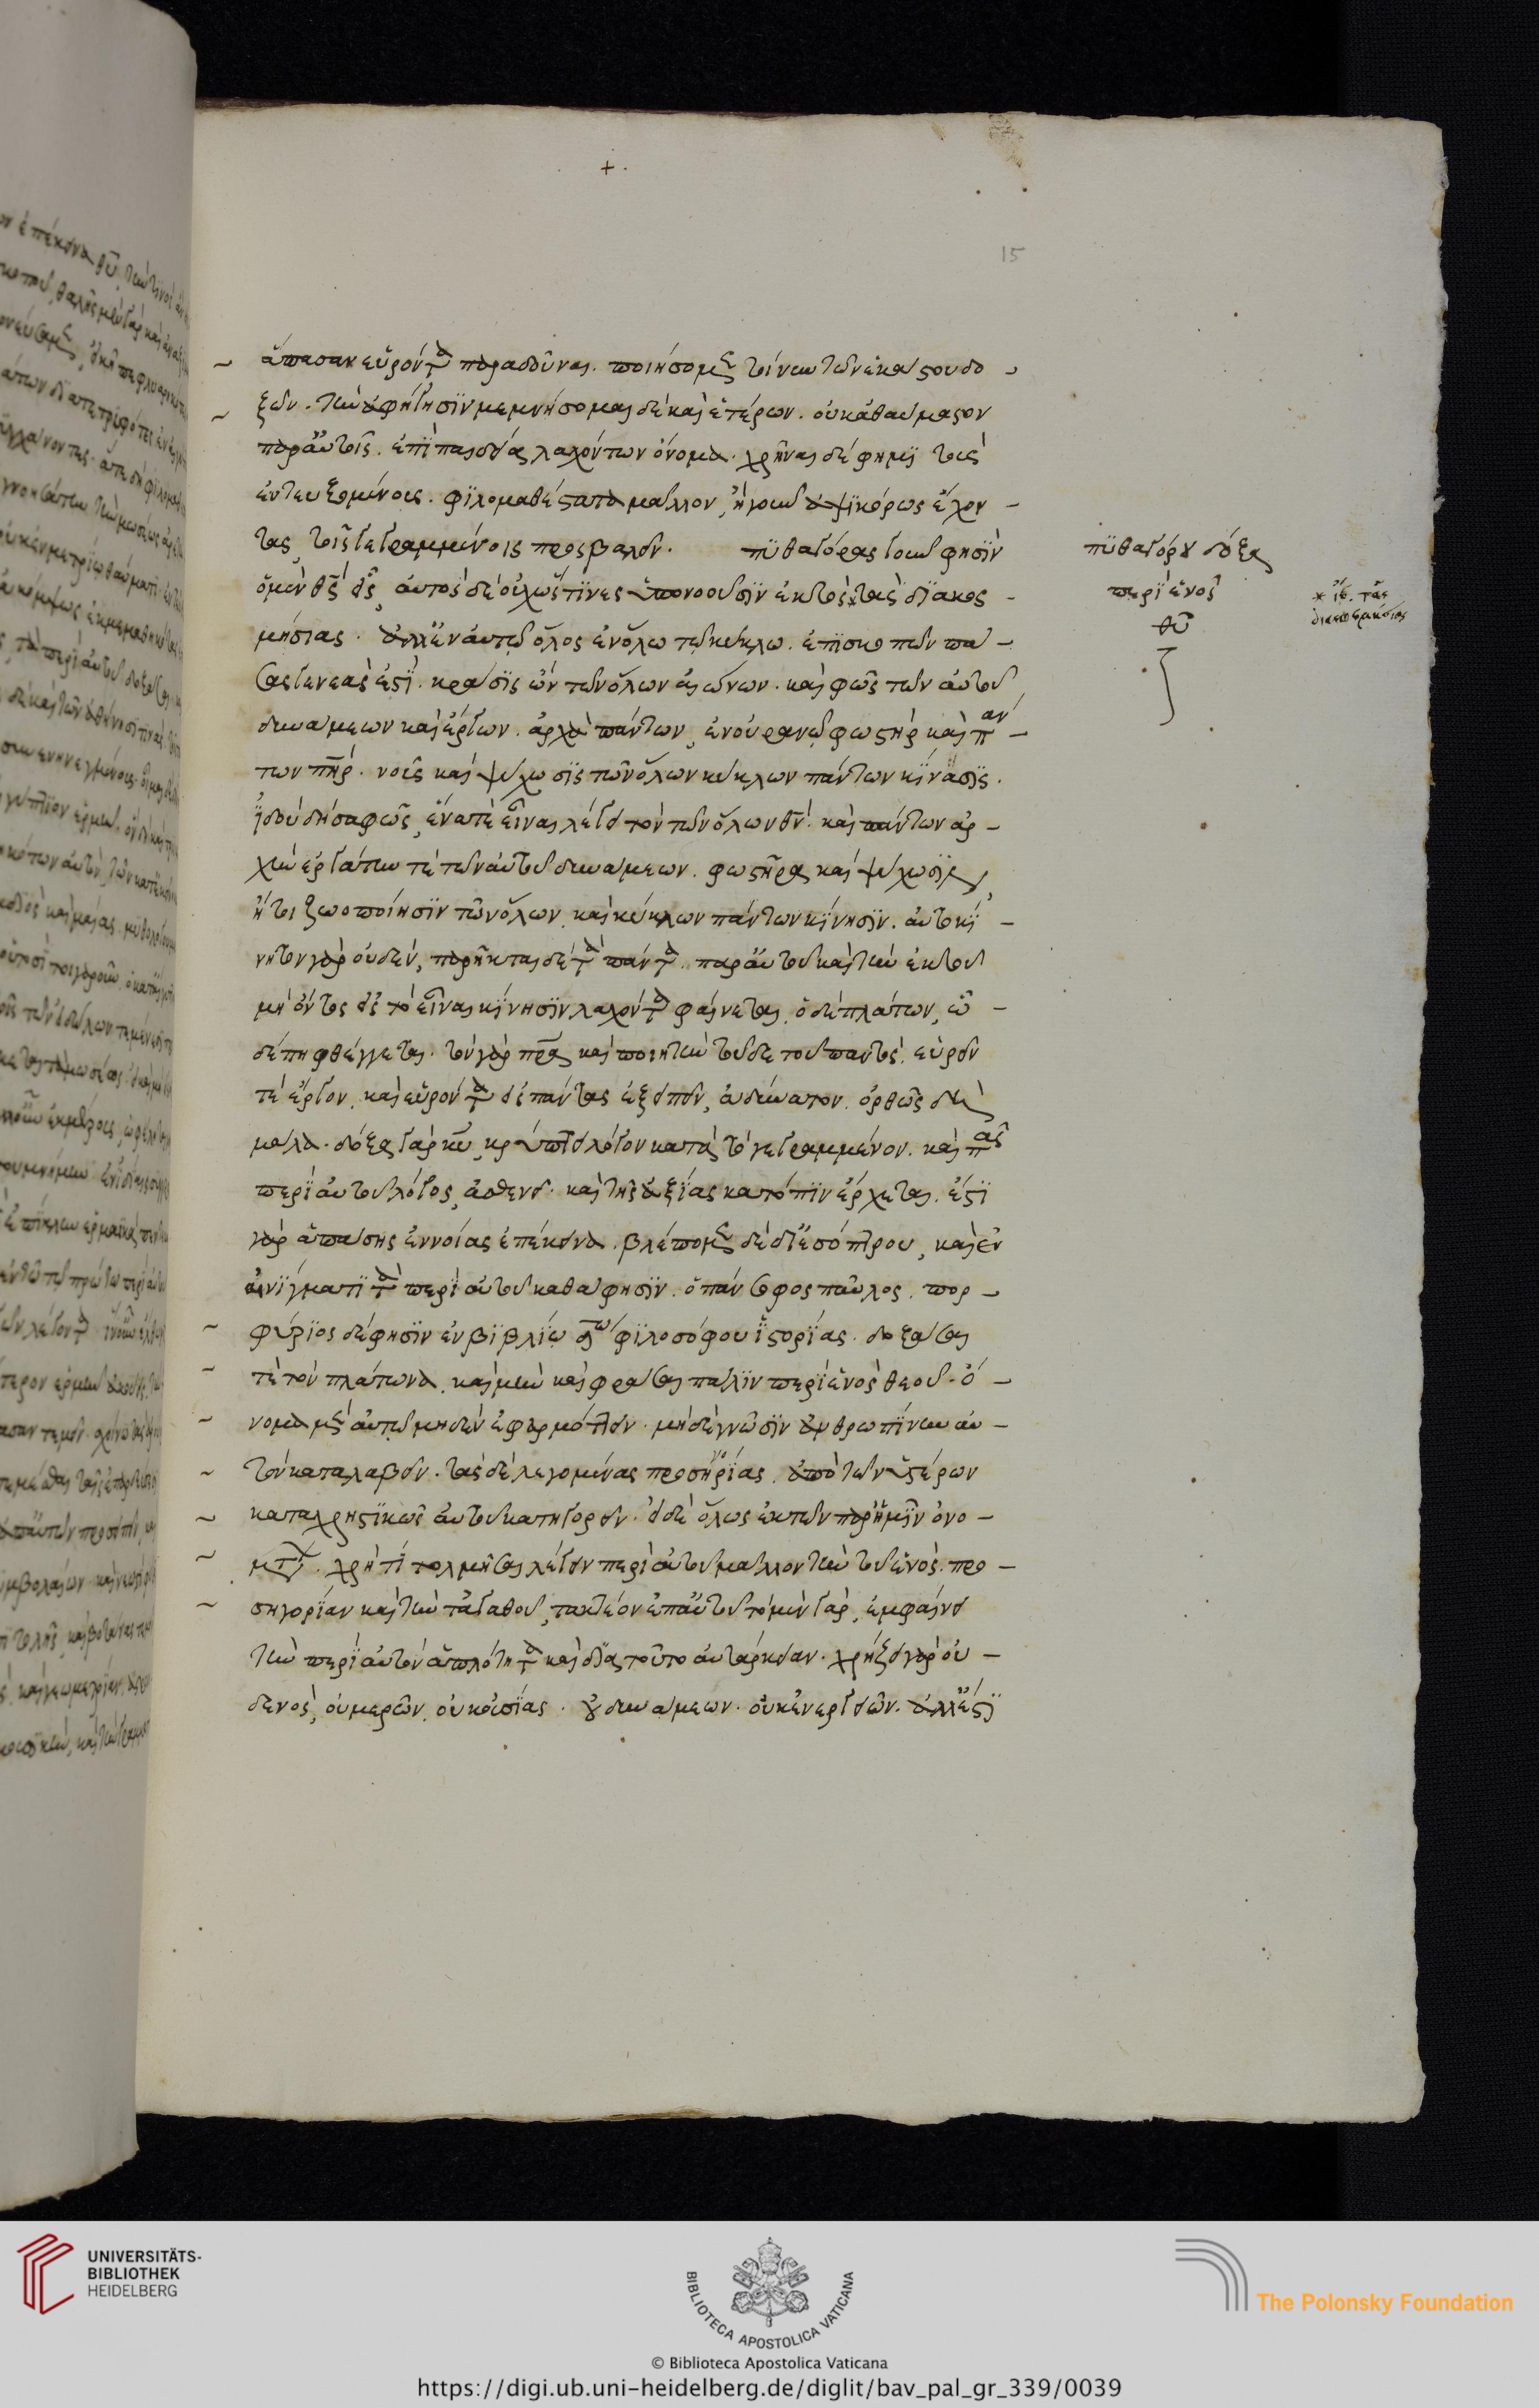 +.
15
ἅπασαν εὑρόντα παραδοῦναι. ποιήσομαι τοίνυν τῶν ἑκάστου δο-
ξῶν. τὴν ἀφήγησϊν μεμνήσομαι δὲ καὶ ἑτέρων. οὐκ ἀθαύμαστον
παρ' αὐτοῖς. ἐπῒ παιδείᾳ λαχόντων ὄνομα. χρῆναι δέ φημϊ τοὺς
ἐντευξομένους. φϊλομαθέστατα μᾶλλον, ἤγουν ἀψϊκόρως ἔχον-
τας, τοῖς γεγραμμένοις προσβαλεῖν. πϋθαγόρας γοῦν φησῒν
ὁ μὲν θς εἷς, αὐτὸς δὲ οὐχ ὥς τϊνες ὑπονοοῦσϊν ἐκτὸς τᾶς δϊακοσ-
μήσιας. ἀλλ' ἐν αὐτῷ ὅλος ἐν ὅλω τῷ κύκλω. ἐπίσκοπῶν πά-
σας γενεὰς ἐστῒ. κρᾶσϊς ὢν τῶν ὅλων αἰώνων. καὶ φῶς τῶν αὐτοῦ
δυνάμεων καὶ ἔργων. ἀρχὰ πάντων, ἐν οὐρανῷ φωστὴρ καὶ πάν-
των πηρ. νοῦς καὶ ψύχωσϊς τῶν ὅλων κύκλων πάντων κίνασϊς.
ἰδοὺ δὴ σαφῶς, ἕνα τὲ εἶναι λέγει τὸν τῶν ὅλων θν. καὶ πάντων ἀρ-
χὴν ἐργάτην τὲ τῶν αὐτοῦ δυνάμεων. φωστῆρα καὶ ψύχωσϊν,
ἤτοι ζωοποίησϊν τῶν ὅλων. καὶ κύκλων πάντων κϊνησϊν. αὐτοκϊ-
νητον γὰρ οὐδὲν, παρῆκται δὲ τὰ πάντα παρ' αὐτοῦ καὶ τὴν ἐκ τοῦ
μὴ ὄντος εἰς τὸ εἶναι κϊνησϊν λαχόντα φαίνεται. ὁ δὲ πλάτων, ὧ-
δέ πη φθέγγεται. τὸν γὰρ πρα καὶ ποιητὴν τοῦδε τοῦ παντὸς. εὑρεῖν
τὲ ἔργον. καὶ εὑρόντα εἰς πάντας ἐξειπεῖν, ἀδύνατον. ὀρθῶς δὴ
μάλα. δόξα γὰρ κυ, κρύπτει λόγον κατὰ τὸ γεγραμμένον. καὶ πᾶς
περῒ αὐτοῦ λόγος, ἀσθενεῖ. καὶ τῆς ἀξίας κατόπϊν ἔρχεται. ἐστῒ
γὰρ ἁπάσης ἐννοίας ἐπέκεινα. βλέπομεν δὲ δι' ἐσόπτρου, καὶ ἐν
αἰνίγματϊ τὰ περῒ αὐτοῦ καθά φησϊν. ὁ πάνσοφος παῦλος. πορ-
φύρϊος δέ φησϊν ἐν βϊβλίω δω φϊλοσόφου ἱστορΐας. δοξάσαι
τὲ τὸν πλάτωνα. καὶ μὴν καὶ φράσαι πάλϊν περῒ ἑνὸς θεοῦ. ὄ-
νομα μὲν αὐτῷ μηδὲν ἐφαρμόττειν. μηδὲ γνῶσϊν ἀνθρωπϊνην αὐ-
τὸν καταλαβεῖν. τὰς δὲ λεγομένας προσηγορΐας. ἀπὸ τῶν ὑστέρων
καταχρηστϊκῶς αὐτοῦ κατηγορεῖν. εἰ δὲ ὅλως ἐκ τῶν παρ' ἡμῖν ὀνο-
μάτων. χρή τϊ τολμῆσαι λέγειν περῒ αὐτοῦ μᾶλλον τὴν τοῦ ἑνὸς. προ-
σηγορΐαν καὶ τὴν τἀγαθοῦ, τακτέον ἐπ' αὐτοῦ τὸ μὲν γὰρ, ἐμφαίνει
τὴν περῒ αὐτὸν ἁπλότητα καὶ δϊὰ τοῦτο αὐτάρκειαν. χρήζει γὰρ οὐ-
δενὸς, οὐ μερῶν. οὐκ οὐσΐας. οὐ δυνάμεων. οὐκ ἐνεργειῶν. ἀλλ' ἐστῒ
πϋθαγόρου δόξα
περῒ ἑνὸς
θυ
UNIVERSITÄTS-
BIBLIOTHEK
HEIDELBERG
BIBLIOTECA APOSTOLICA VATICANA
© Biblioteca Apostolica Vaticana
The Polonsky Foundation
https://digi.ub.uni-heidelberg.de/diglit/bav_pal_gr_339/0039